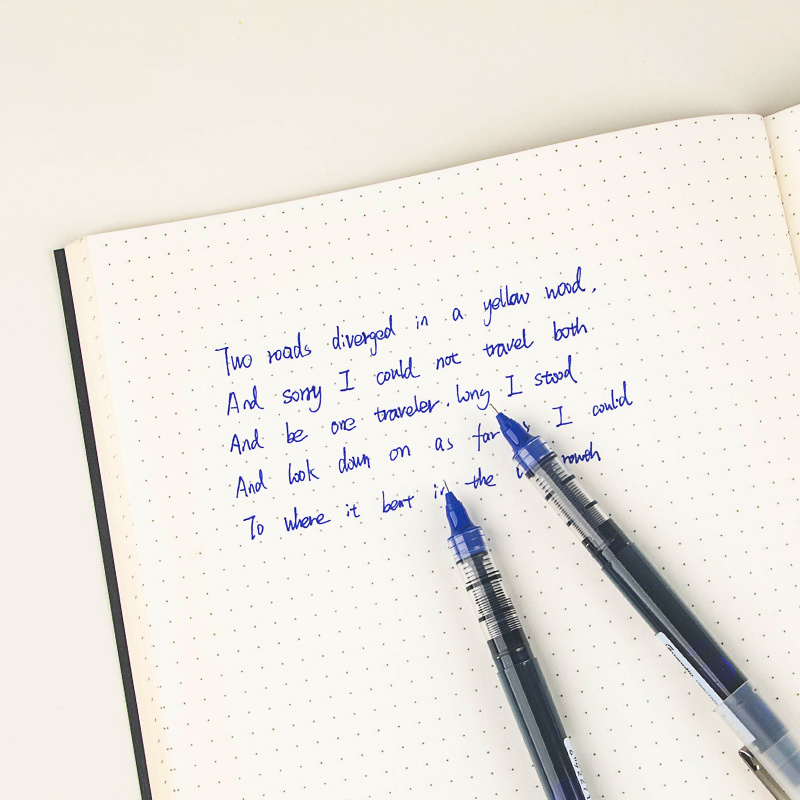 Two roads diverged in a yellow wood.
And sorry I could not travel both
And be one traveler. long I stood
And look down on as far I could
To where it bent in the